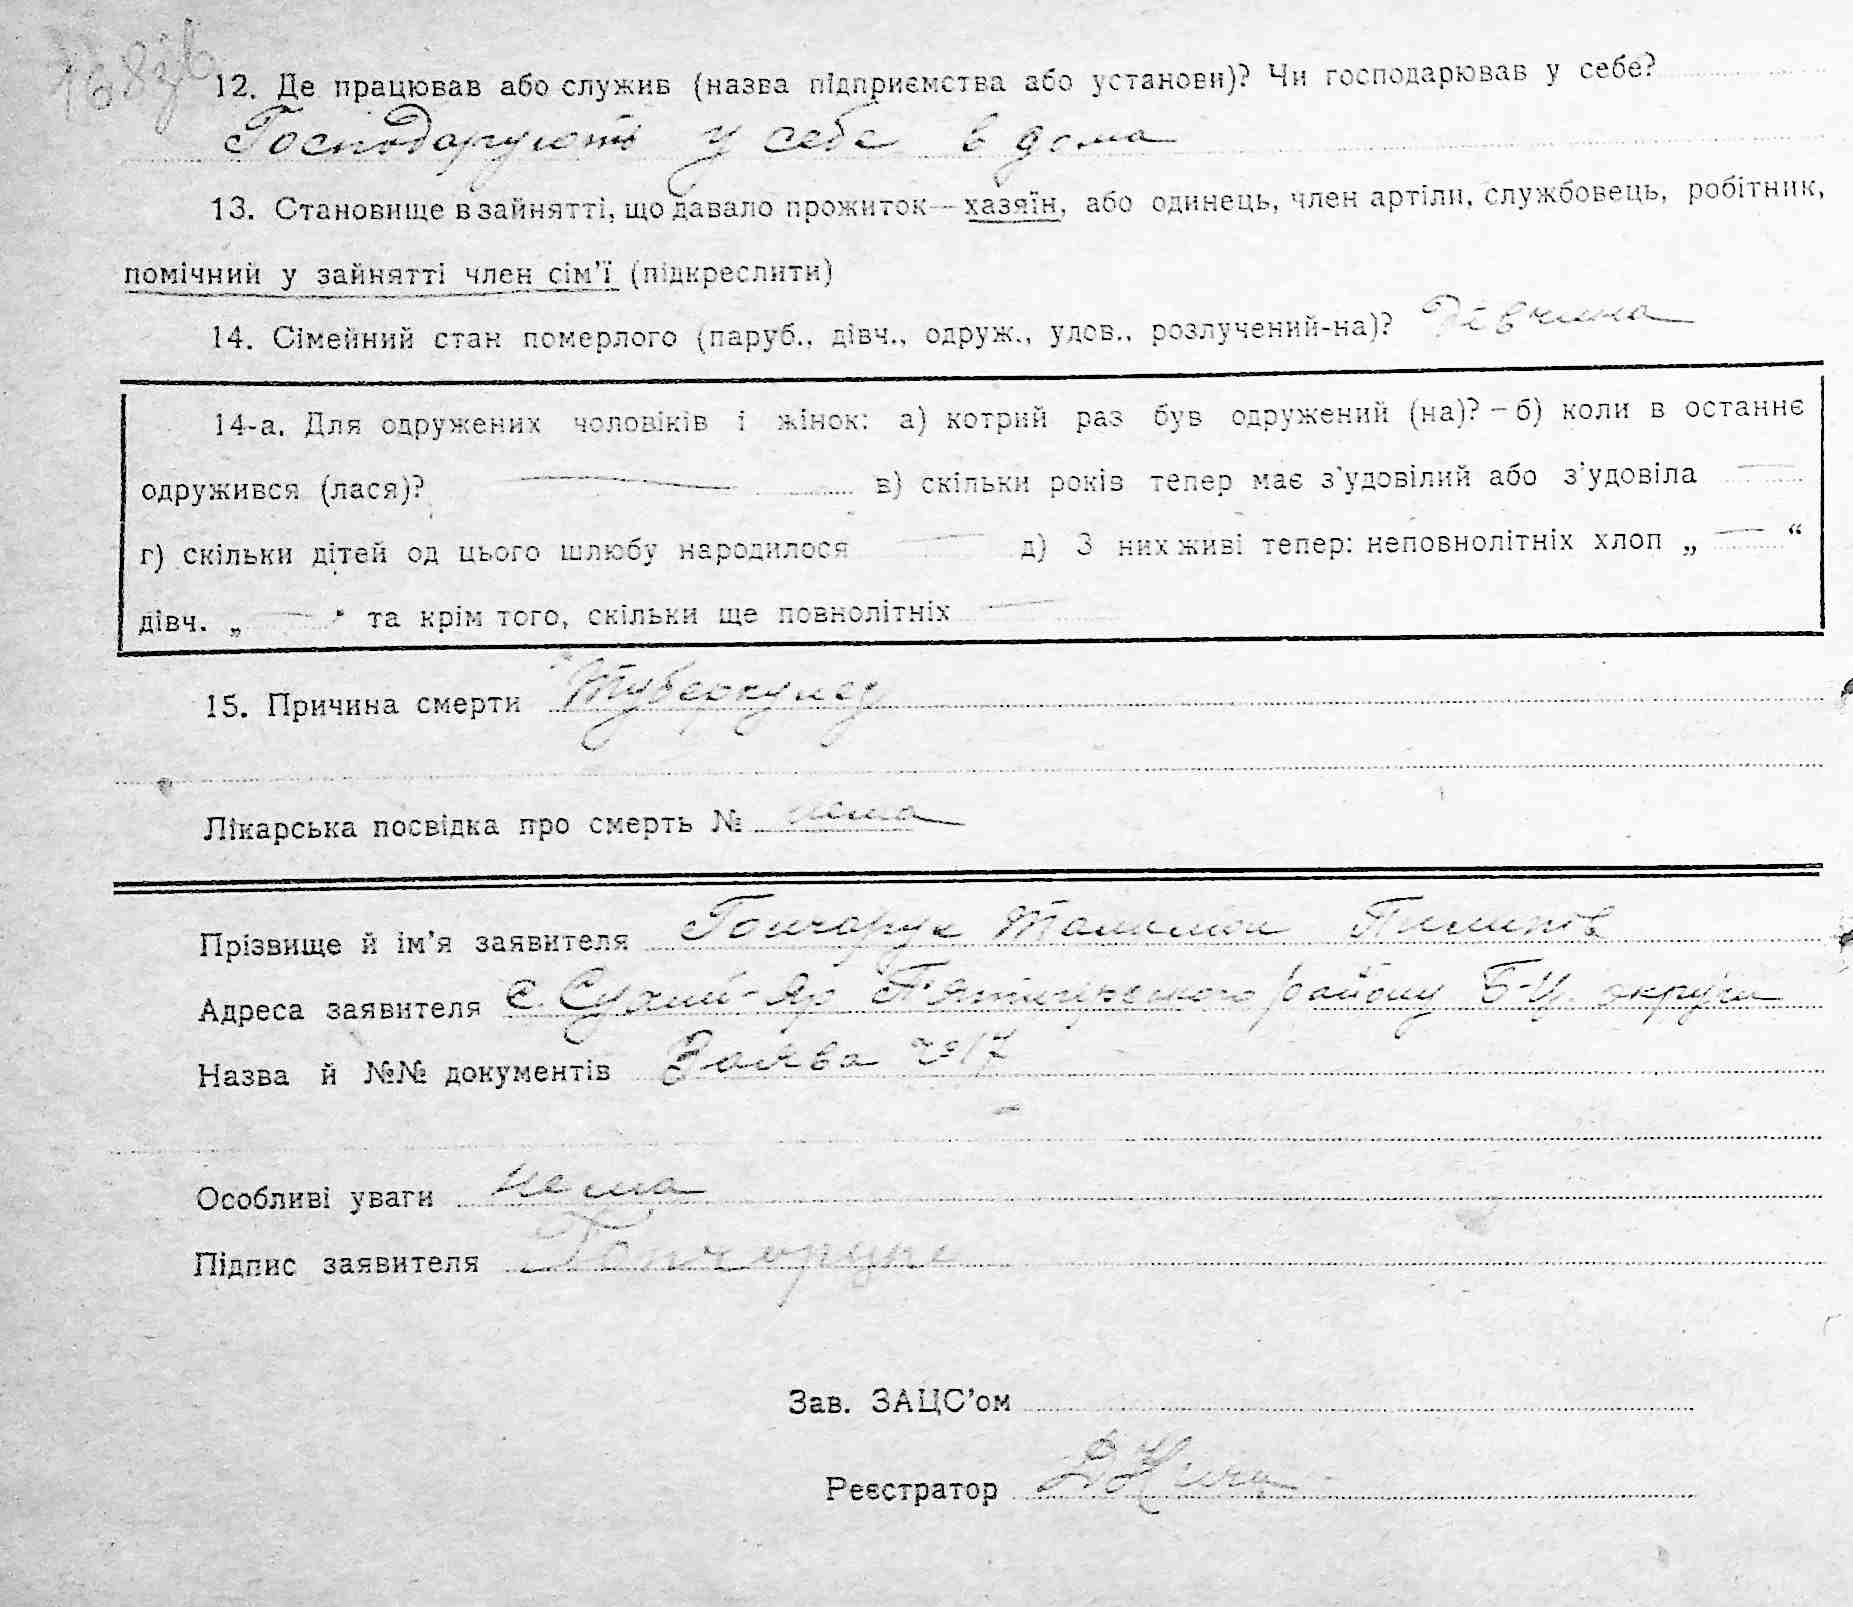 168зв
12. Де працював або служив (назва підприємства або установи)? Чи господарював у себе?
Господарують у себе в дома
13. Становище в зайнятті, що давало прожиток—хазяїн, або одинець, член артіли, службовець, робітник,
помічний у зайнятті член сім'ї (підкреслити)
14. Сімейний стан померлого (паруб., дівч., одруж., удов., розлучений-на)? Дівчина
14-а. Для одружених чоловіків і жінок: а) котрий раз був одружений (на)? – б) коли в останнє
одружився (лася)? — в) скільки років тепер має з'удовілий або з'удовіла —
г) скільки дітей од цього шлюбу народилося — д) З них живі тепер: неповнолітніх хлоп „ — “
дівч. „ — “ та крім того, скільки ще повнолітніх —
15. Причина смерти Туберкульоз
Лікарська посвідка про смерть № нема
Прізвище й ім'я заявителя Гончарук Пилипів
Адреса заявителя с. Сухий-Яр П'ятигірського району Б-Ц. округи
Назва й №№ документів Заява №17
Особливі уваги нема
Підпис заявителя Гончарук
Зав. ЗАЦС'ом
Реєстратор